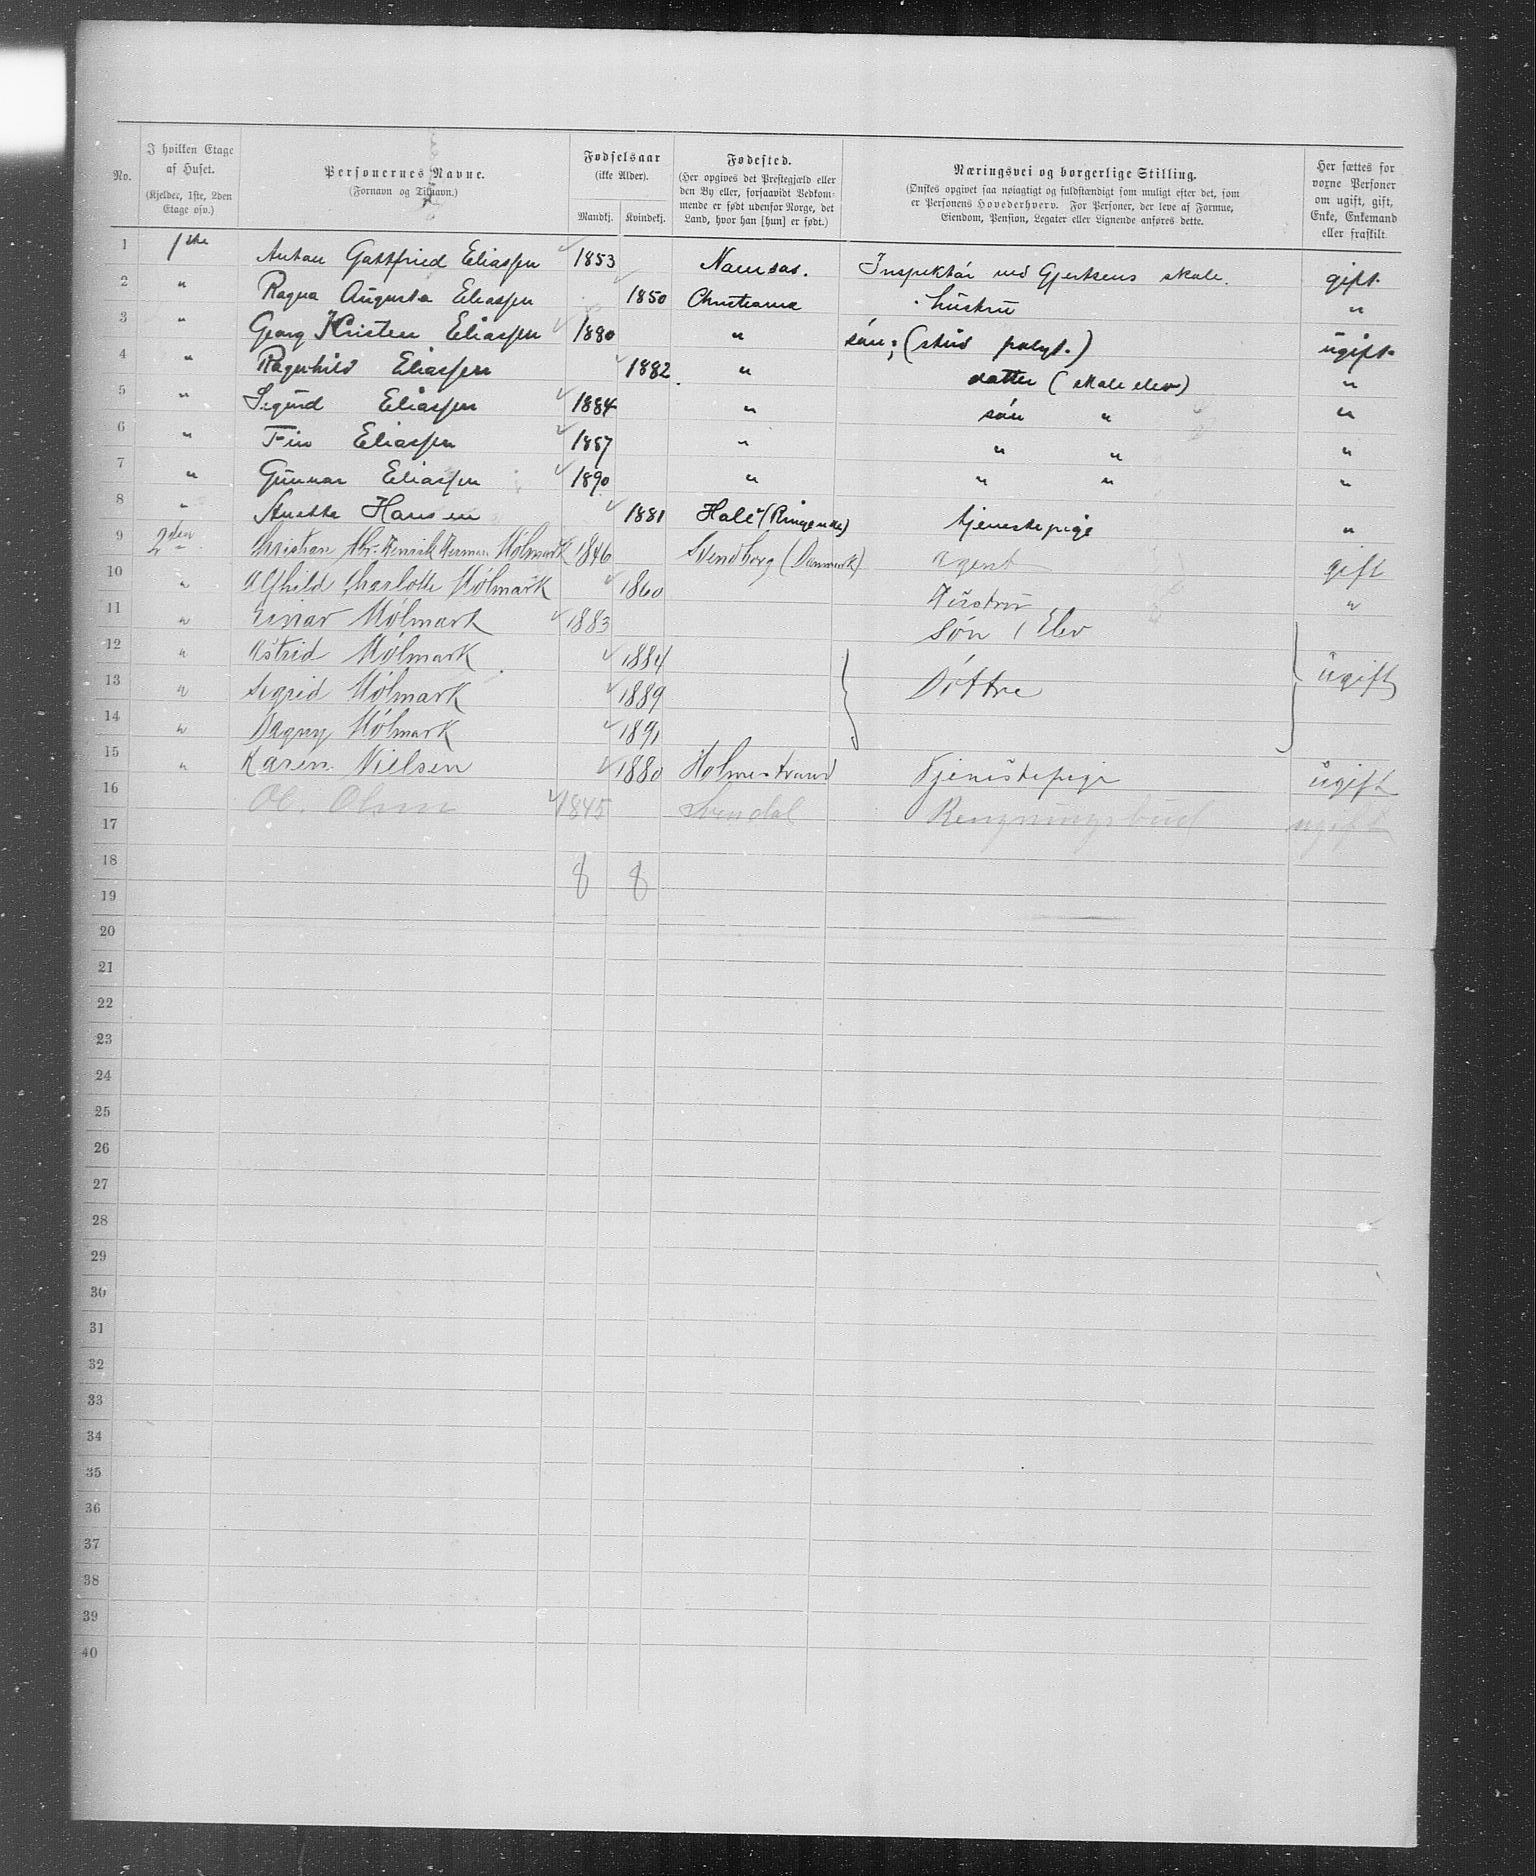 No. I hvilken Etage af Huset. (Kjelder, 1ste, 2den Etage osv.) Personernes Navne. (Fornavn og Tilnavn.) Fødselsaar (ikke Alder). Mandkj. Kvindekj. Fødested. (Her opgives det Prestegjæld eller den By eller, forsaavidt Vedkommende er født udenfor Norge, det Land, hvor han [hun] er født.) Næringsvei og borgerlige Stilling. (Ønskes opgivet saa nøiagtigt og fuldstændigt som muligt efter det, som er Personens Hovederhverv. For Personer, der leve af Formue, Eiendom, Pension, Legater eller Lignende anføres dette. Her sættes for voxne Personer om ugift, gift, Enke, Enkemand eller fraskilt.
1 1ste Anton Gottfried Eliassen 1853 Namsos. Inspektør ved Gjertsens skole. gift.
2 " Ragna Augusta Eliassen 1850 Christiania hustru "
3 " Georg Kristen Eliassen 1880 " søn; (stud polyt.) ugift.
4 " Ragnhild Eliassen 1882 " datter (skole elev) "
5 " Sigurd Eliassen 1884 " søn " "
6 " Finn Eliassen 1887 " " " "
7 " Gunnar Eliassen 1890 " " " "
8 " Anette Hansen 1881 Hole (Ringerike) tjenestepige "
9 2den Christian Chr. Henrik Herman Mølmark 1846 Svendborg (Danmark) agent gift
10 " Alfhild Charlotte Mølmark 1860 Hustru "
11 " Einar Mølmark 1883 Søn / Elev
12 " Astrid Mølmark 1884
13 " Sigrid Mølmark 1889 Døttre ugift
14 " Dagny Mølmark 1891
15 " Karen Nielsen 1880 Holmestrand Tjenestepige ugift
16 Ol. Olsen 1845 ugift
17
18 8 8
19
20
21
22
23
24
25
26
27
28
29
30
31
32
33
34
35
36
37
38
39
40